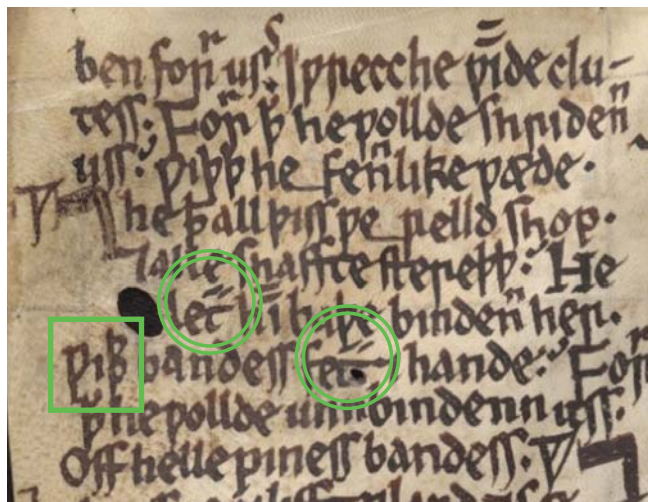 ben forr uss. I ƿrecche ƿīde clu-
tess: Forr ꝥ he ƿollde shridenn
uss: ƿiþþ heffennlike ƿæde.
⁊ he ꝥ all þiss ƿerelld shop.
⁊ alle shaffte stereþþ: He
let hī baþe bindenn her.
ƿiþþ bandess fet ⁊ hande: Forr
ꝥ he ƿollde unnbindenn uss.
Off helle piness bandess: